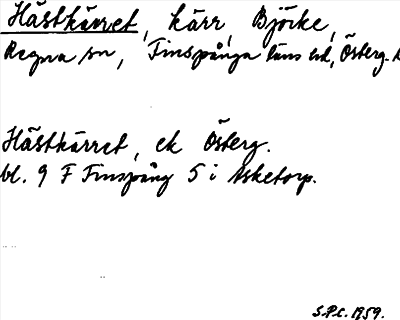 Hästkärret, kärr, Björke,
Regna sn, Finspånga läns hd, Österg.
Hästkärret, ek Österg.
bl. 9 F Finspång 5 i Asketorp.
S.P.C. 1959.